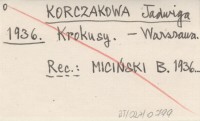 KORCZAKOWA Jadwiga
1936. Krokusy. - Warszawa.
Rec.: MICIŃSKI B. 1936...